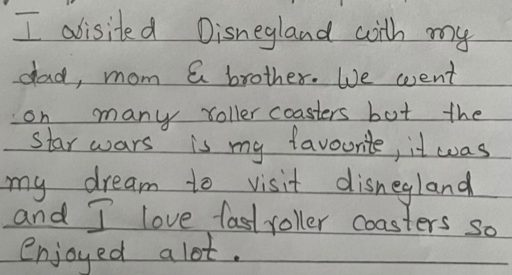 I visited Disneyland with my
dad, mom & brother. We went
on many roller coasters but the
Star wars is my favourite, it was
my dream to visit disneyland
and I love fast roller coasters so
enjoyed alot.